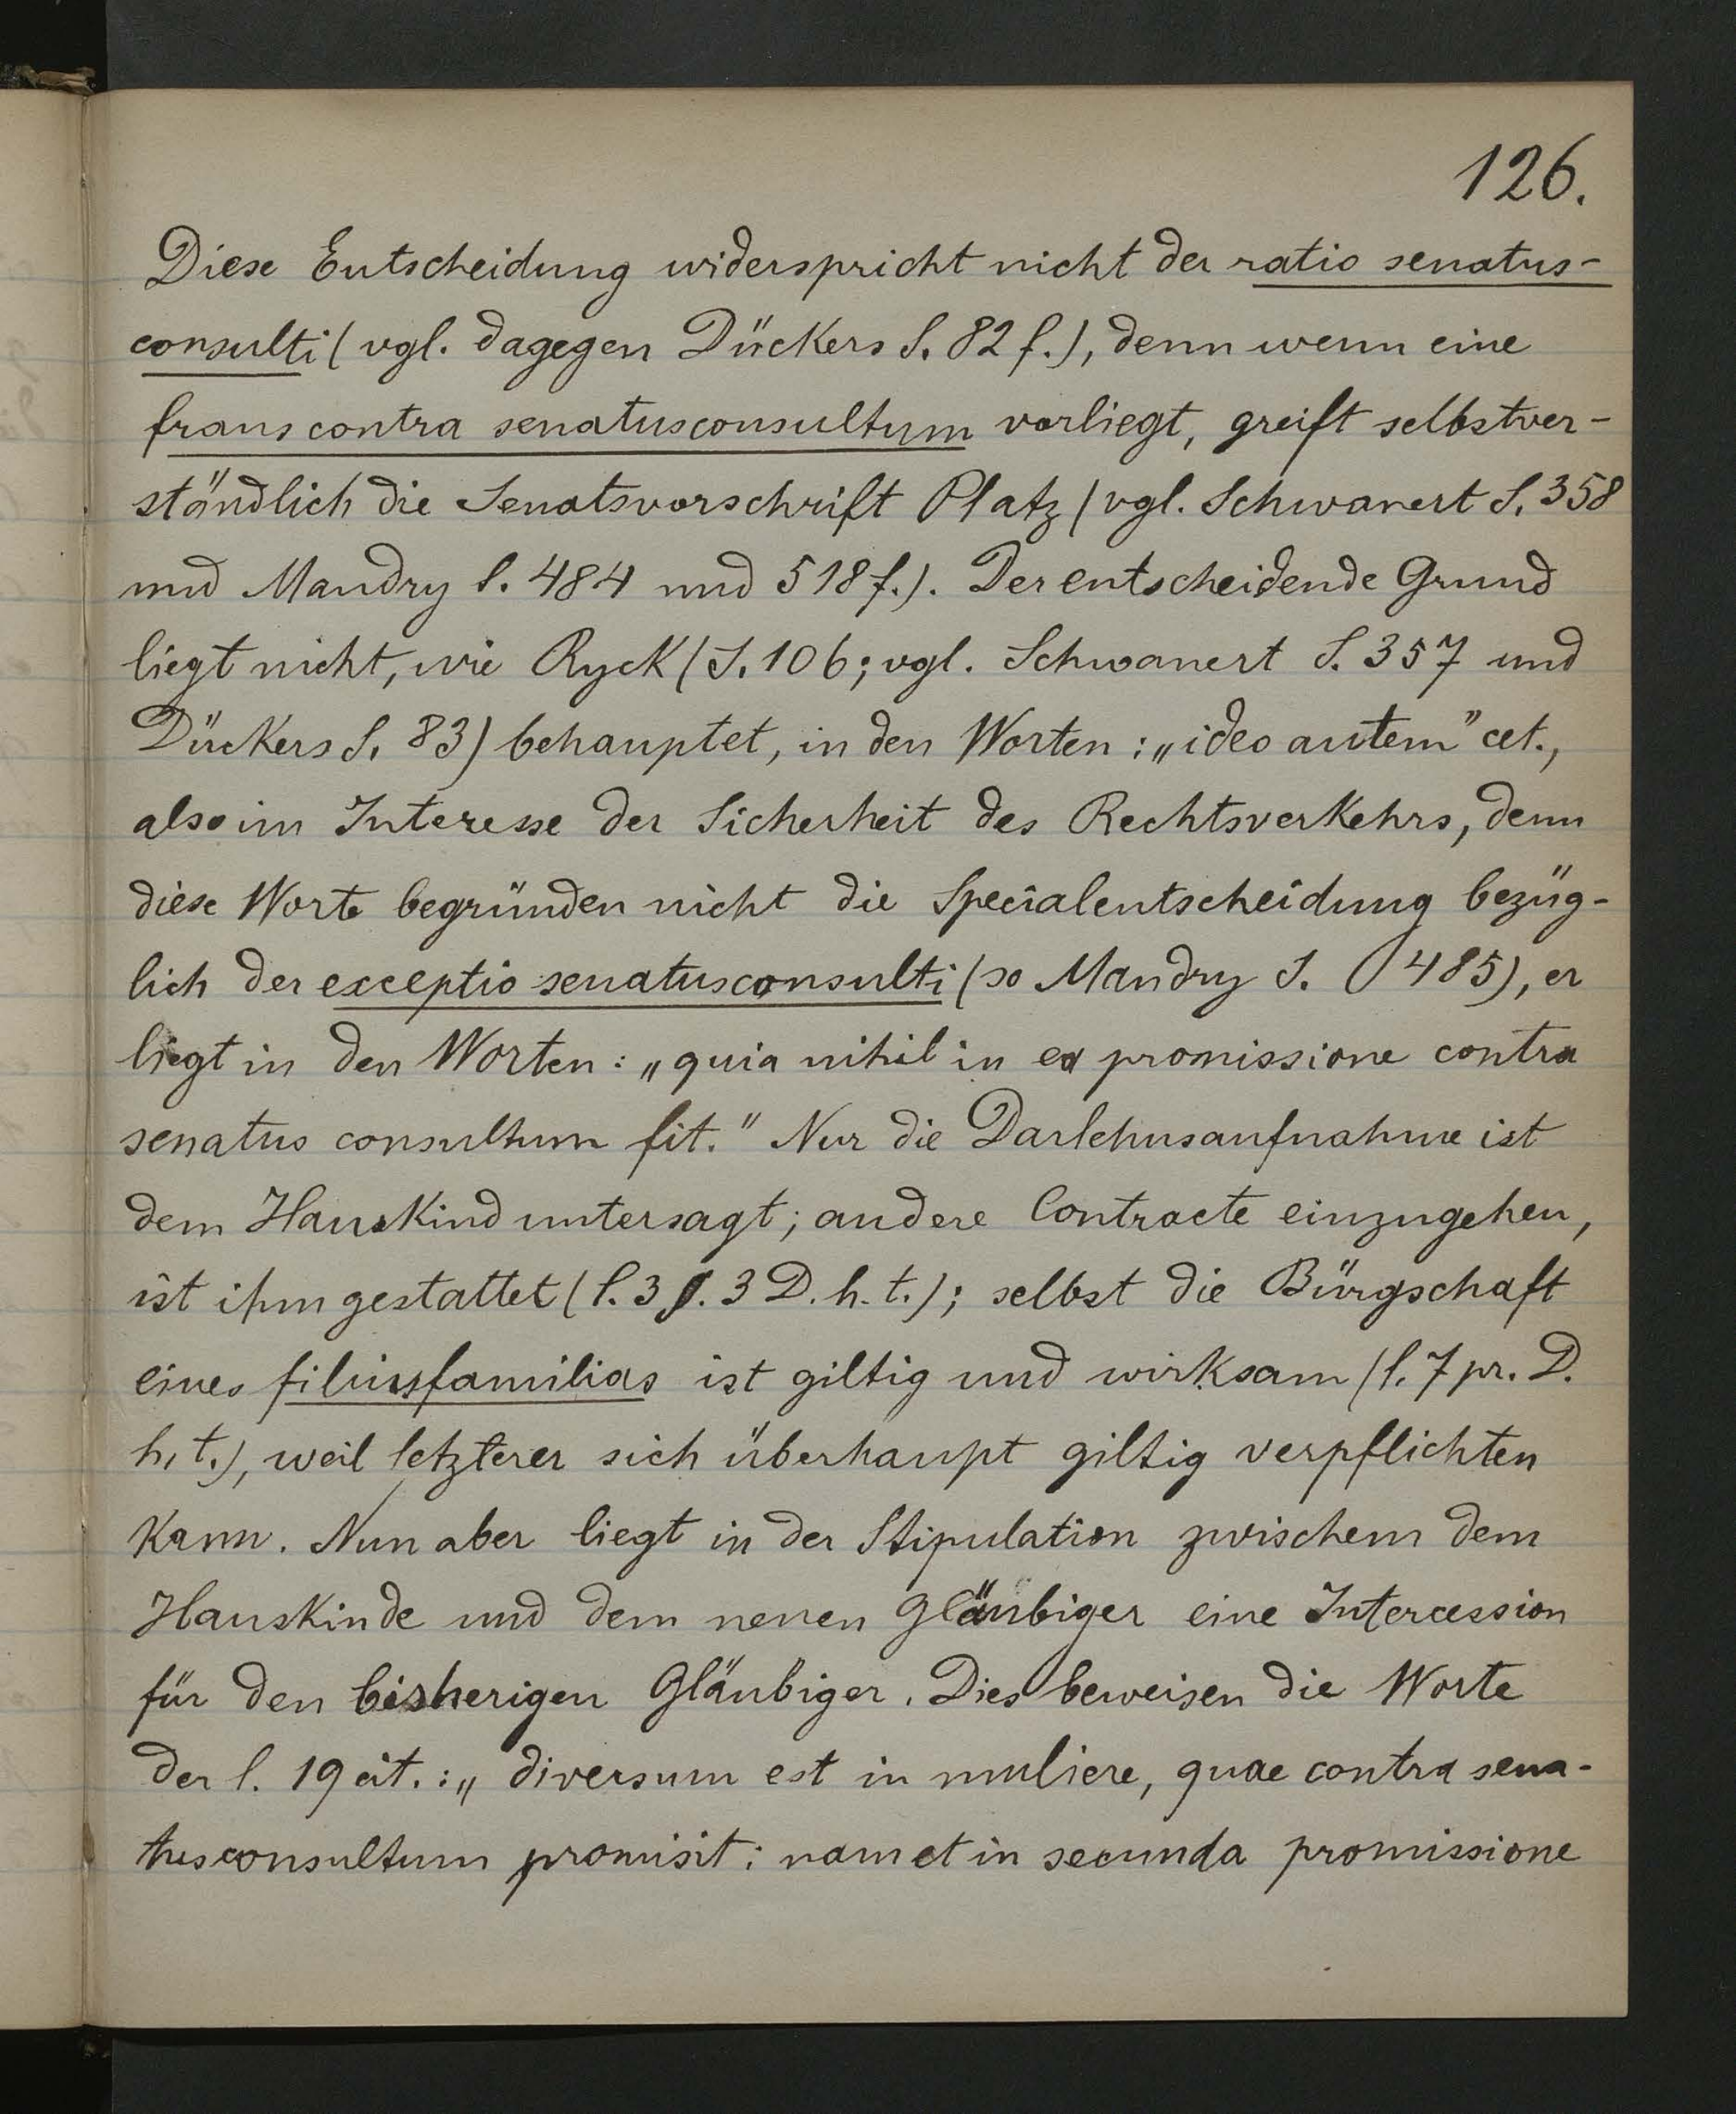 126.
Diese Entscheidung widerspricht nicht der ratio senatus-
consulti (vgl. dagegen Dückers S. 82 f.), denn wenn eine
fraus contra senatusconsultum vorliegt, greift selbstver-
ständlich die Senatsvorschrift Platz (vgl. Schwanert S. 358
und Mandry S. 484 und 518 f.). Der entscheidende Grund
liegt nicht, wie Ryck (S. 106; vgl. Schwanert S. 357 und
Dückers S. 83) behauptet, in den Worten: „ideo autem" cet.,
also im Interesse der Sicherheit des Rechtsverkehrs, denn
diese Worte begründen nicht die Specialentscheidung bezüg-
lich der exceptio senatusconsulti (so Mandry S. 485), er
liegt in den Worten: „quia nihil in ea promissione contra
senatus consultum fit." Nur die Darlehnsaufnahme ist
dem Hauskind untersagt; andere Contracte einzugehen,
ist ihm gestattet (l. 3 §. 3 D. h. t.); selbst die Bürgschaft
eines filiusfamilias ist giltig und wirksam (l. 7 pr. D.
h. t.), weil letzterer sich überhaupt giltig verpflichten
kann. Nun aber liegt in der Stipulation zwischem dem
Hauskinde und dem neuen Gläubiger eine Intercession
für den bisherigen Gläubiger. Dies beweisen die Worte
der l. 19 cit.: „diversum est in muliere, quae contra sena-
tusconsultum promisit: nam et in secunda promissione